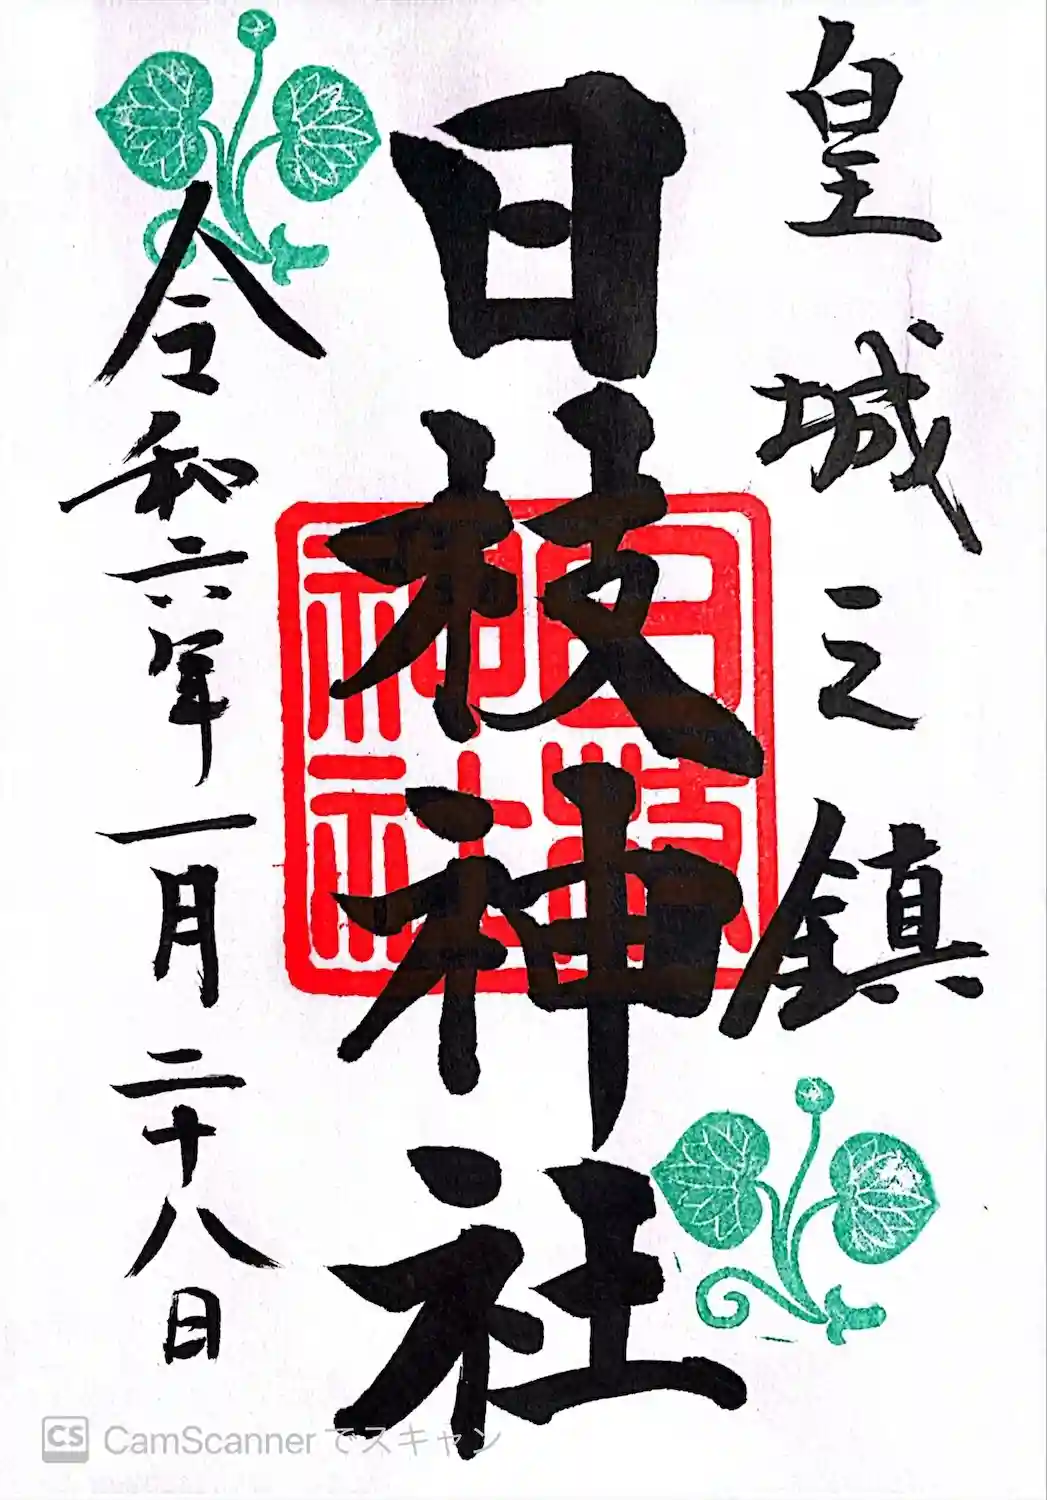 皇城之鎮
日枝神社
日枝神社
令和六年一月二十八日
CS CamScannerでスキャン